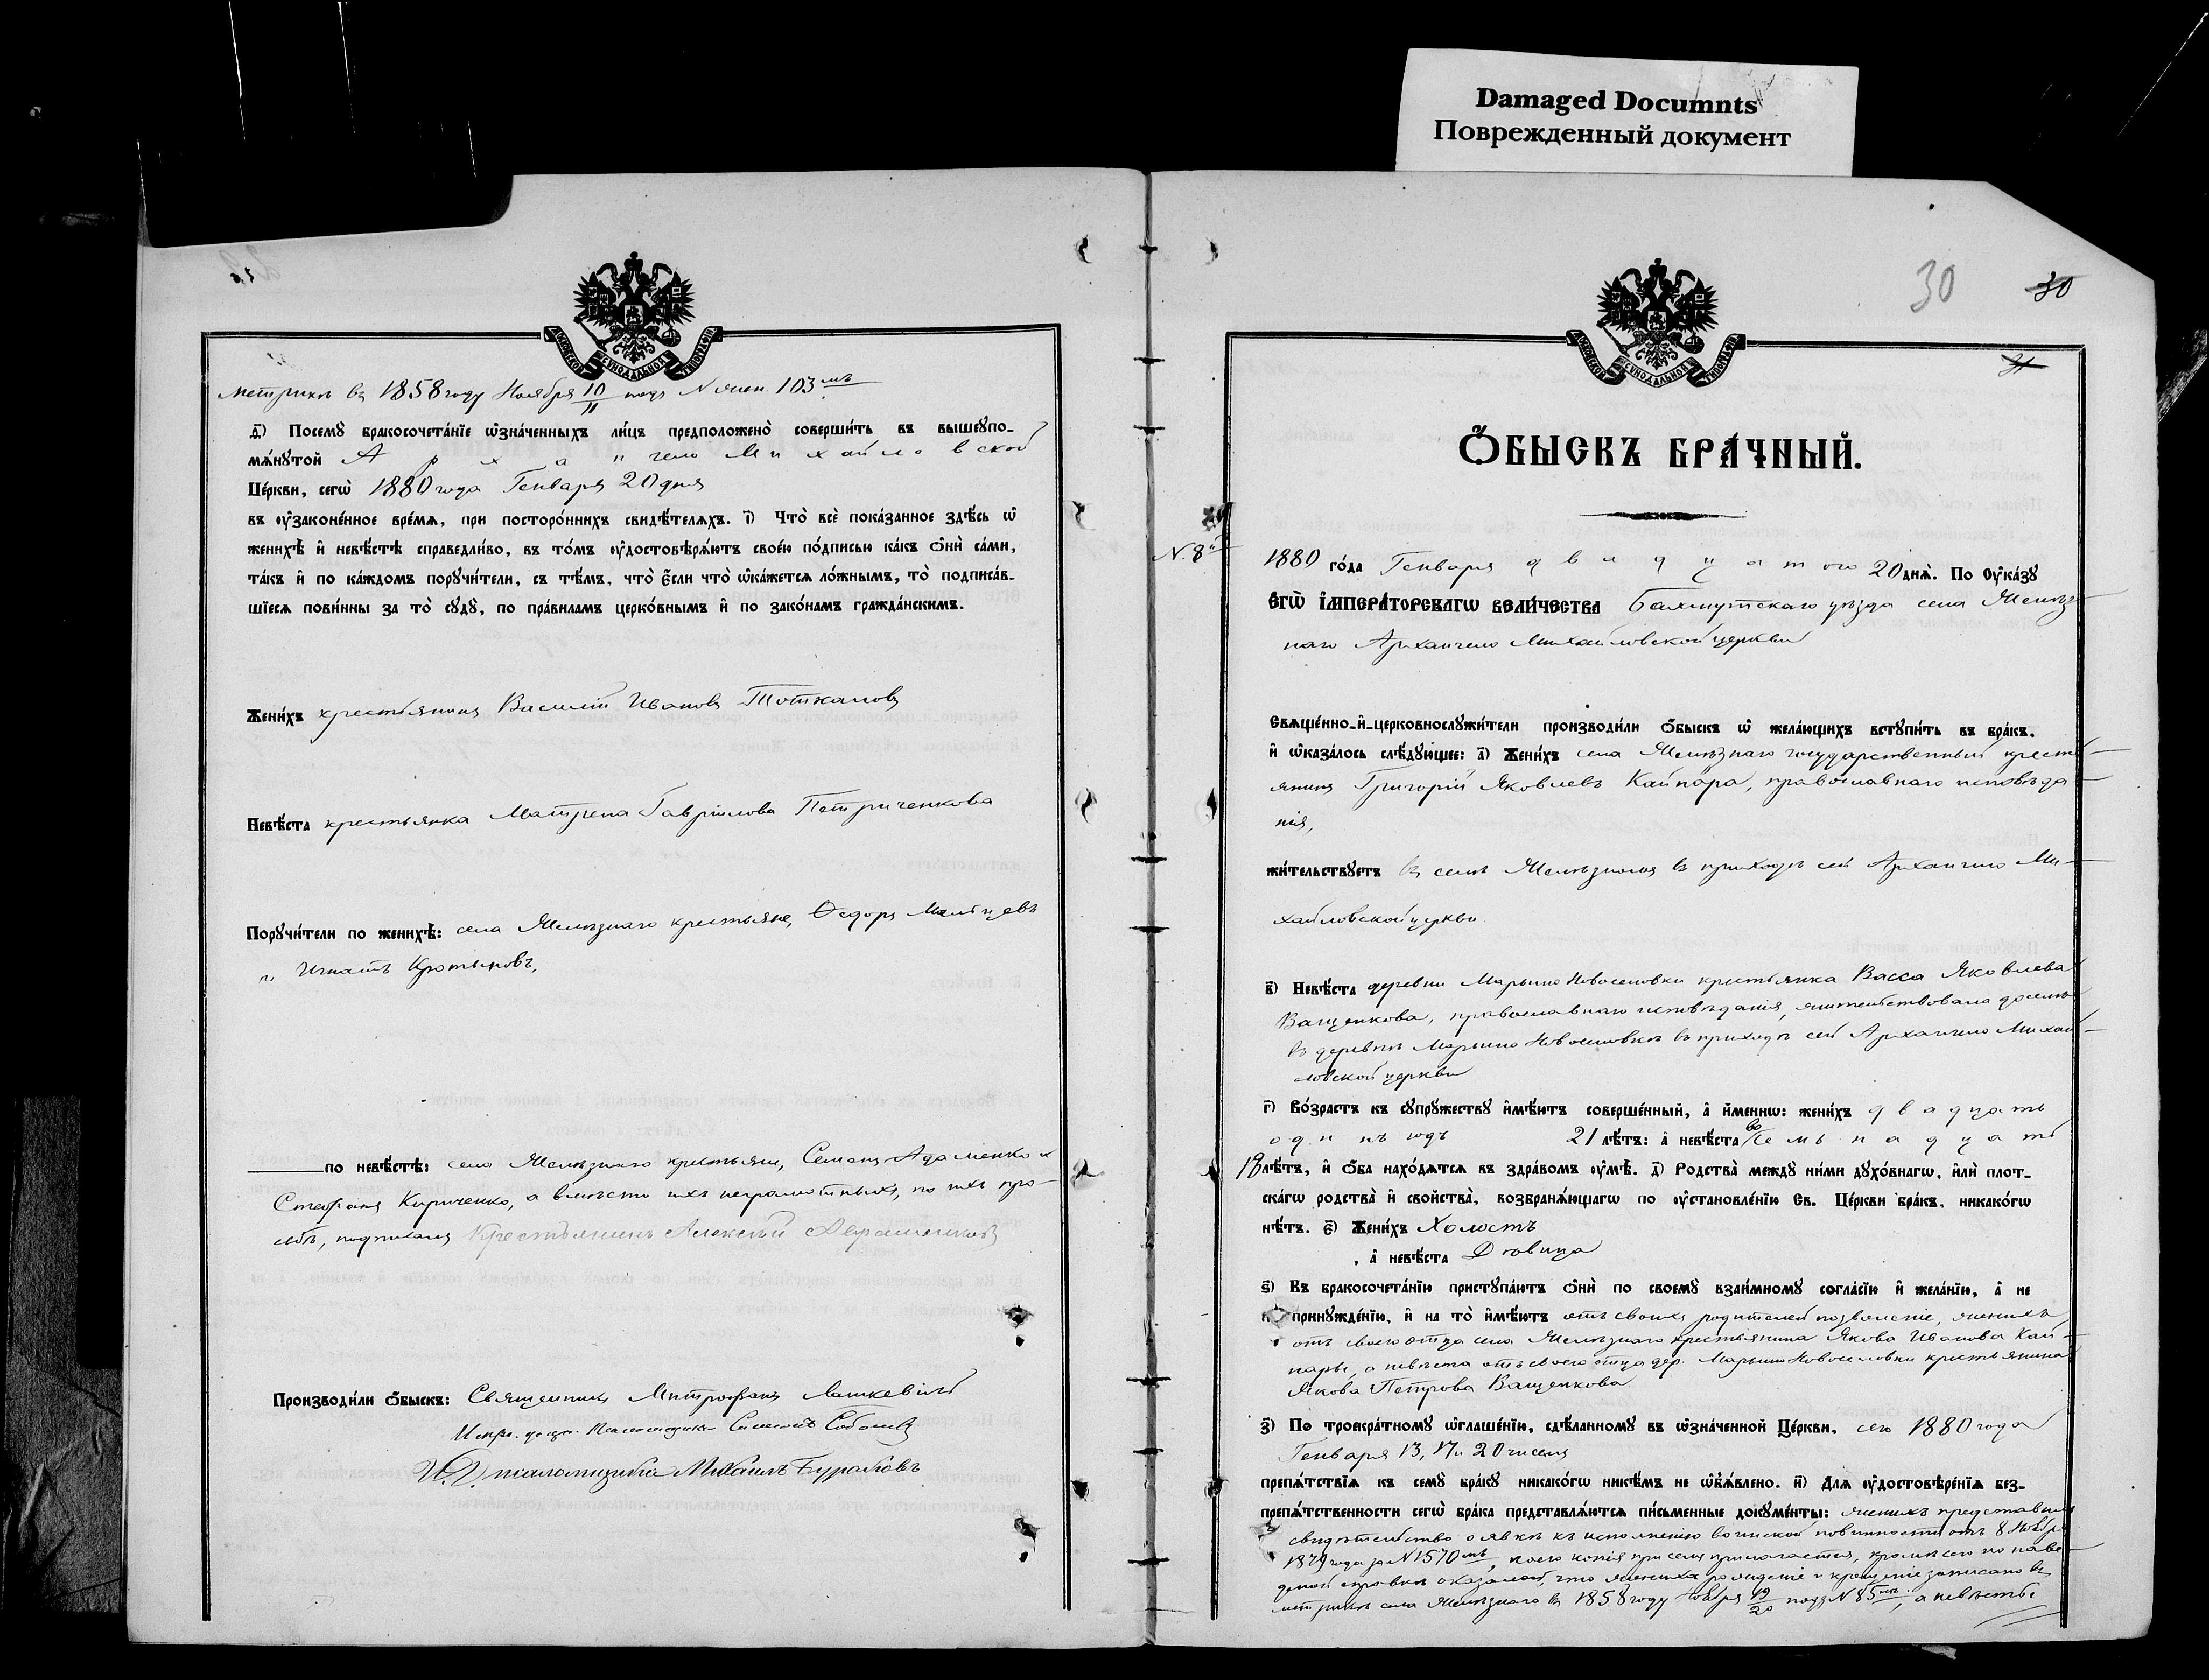 Damaged Documnts
Поврежденный документ
МОСКОВСКОЙ СѴНОДАЛЬНОЙ ТИПОГРАФІИ
метрикѣ въ 1858 году Ноября 10/11 подъ № жен. 103мъ
Посемꙋ̀ бракосочета́нїе ѡ҆зна́ченныхъ ли́цъ предположено̀ соверши́ть въ вышеꙋпо-
мѧ́нꙋтой Архангело Михайловской
Це́ркви, сегѡ̀ 1880 года Генваря 20 дня
въ ᲂу҆законе́нное вре́мѧ, при посторо́ннихъ свидѣ́телѧхъ. і҃) Что̀ всѐ пока́занное здѣ́сь ѡ҆
женихѣ̀ и҆ невѣ́стѣ справедли́во, въ то́мъ ᲂу҆достовѣрѧ́ютъ свое́ю по́дписью ка́къ ѻ҆нѝ са́ми,
та́къ и҆ по ка́ждомъ порꙋчи́тели, съ тѣ́мъ, что̀ є҆́сли что̀ ѡ҆ка́жетсѧ ло́жнымъ, то̀ подписа́в-
шїесѧ пови́нны за то̀ сꙋдꙋ̀, по пра́виламъ церко́внымъ и҆ по зако́намъ гражда́нскимъ.
Жени́хъ крестьянинъ Василій Ивановъ Тоткаловъ
Невѣ́ста крестьянка Матрена Гаврилова Петриченкова
Порꙋчи́тели по женихѣ̀: села Желѣзнаго крестьяне, Ѳедоръ Мальцевъ
и Игнатъ Кротыновъ,
по невѣ́стѣ: села Желѣзнаго крестьяне, Семенъ Адаменко и
Стефанъ Кириченко, а вмѣсто ихъ неграмотныхъ, по ихъ про-
сьбѣ, подписался Крестьянинъ Алексѣй
Производи́ли ѻ҆́быскъ: Священникъ Митрофанъ Лашкевичъ
Испр. долж. Псаломщика Симеонъ Соболевъ
И. Д. псаломщика Михаилъ Бураковъ
30 30
31
МОСКОВСКОЙ СѴНОДАЛЬНОЙ ТИПОГРАФІИ
Ѻ҆́БЫСКЪ БРА́ЧНЫЙ.
N. 8й
1880 го́да Генваря двадцатого 20 днѧ̀. По Оу҆ка́зꙋ
Є҆ГѠ̀ І҆МПЕРА́ТОРСКАГѠ ВЕЛИ́ЧЕСТВА Бахмутскаго уѣзда села Желѣз-
наго Архангело Михайловской церкви
Сващє́нно-и҆-церковнослꙋжи́тели производи́ли ѻ҆́быскъ ѡ҆ жела́ющихъ встꙋпи́ть въ бра́къ,
и҆ ѡ҆каза́лось слѣ́дꙋющее: а҃) Жени́хъ села Желѣзнаго государственный кресть-
янинъ Григорій Яковлевъ Кайпара, православнаго исповѣда-
нія,
жи́тельствꙋетъ въ селѣ Желѣзномъ въ приходѣ сей Архангело Ми-
хайловской церкви
в҃) Невѣ́ста деревни Марьино Новоселовки крестьянка Васса Яковлева
Ващенкова, православнаго исповѣданія, жительствовала доселѣ
въ деревнѣ Марьино Новоселовкѣ въ приходѣ сей Архангело Михай-
ловской церкви
г҃) Во́зрастъ къ сꙋпрꙋ́жествꙋ и҆мѣ́ютъ соверше́нный, а҆ и҆́меннѡ: жени́хъ двадцать
одинъ годъ 21 лѣ́тъ: а҆ невѣ́ста восемьнадцать
18 лѣ́тъ, и҆ ѻ҆́ба нахо́дѧтсѧ въ здра́вомъ ᲂу҆мѣ̀. д҃) Родства̀ междꙋ̀ ни́ми дꙋхо́внагѡ, и҆лѝ плот-
ска́гѡ родства̀ и҆ сво́йства̀, возбранѧ́ющагѡ по ᲂу҆становле́нїю Св. Це́ркви бра́къ, никако́гѡ
нѣ́тъ. є҃) Жени́хъ Холостъ
, а҆ невѣ́ста Дѣвица
ѕ҃) Къ бракосочета́нїю пристꙋпа́ютъ ѻ҆нѝ по своемꙋ̀ взаи́мномꙋ согла́сїю и҆ жела́нїю, а҆ не
принꙋжде́нїю, и҆ на то̀ и҆мѣ́ютъ отъ своихъ родителей позволеніе, женихъ
отъ своего отца села Желѣзнаго крестьянина Якова Иванова Кай-
пары, а невѣста отъ своего отца дер. Марьино Новоселовки крестьянина
Якова Петрова Ващенкова
з҃) По троекра́тномꙋ ѡ҆глаше́нїю, сдѣ́ланномꙋ въ ѡ҆зна́ченной Це́ркви, сего 1880 года
Генваря 13, 17 и 20 чиселъ
препѧ́тствїѧ къ семꙋ̀ бра́кꙋ никако́гѡ никѣ́мъ не ѡ҆б̾ѧ́влено. и҃) Для ᲂу҆достовѣре́нїѧ без-
препѧ́тственности сегѡ̀ бра́ка представлѧ́ютсѧ пи́сьменные докꙋме́нты: женихъ представилъ
свидѣтельство о явкѣ къ исполненію воинской повинности отъ 8 Ноябр.
1879 года за №1570мъ, коего копія при семъ прилагается, кромѣ сего по наве-
денной справкѣ оказалось, что жениха рожденіе и крещеніе записано въ
метрикѣ села Желѣзнаго въ 1858 году Ноября 19/20 подъ № 85мъ, а невѣсты